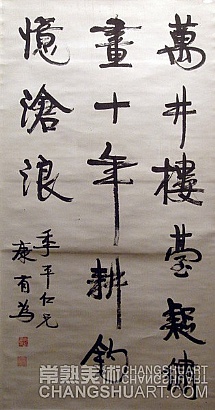 萬井樓臺疑繡
畫十年耕釣
憶滄浪
季平仁兄
康有為
常熟美術 CHANGSHUART
CHANGSHUART.COM